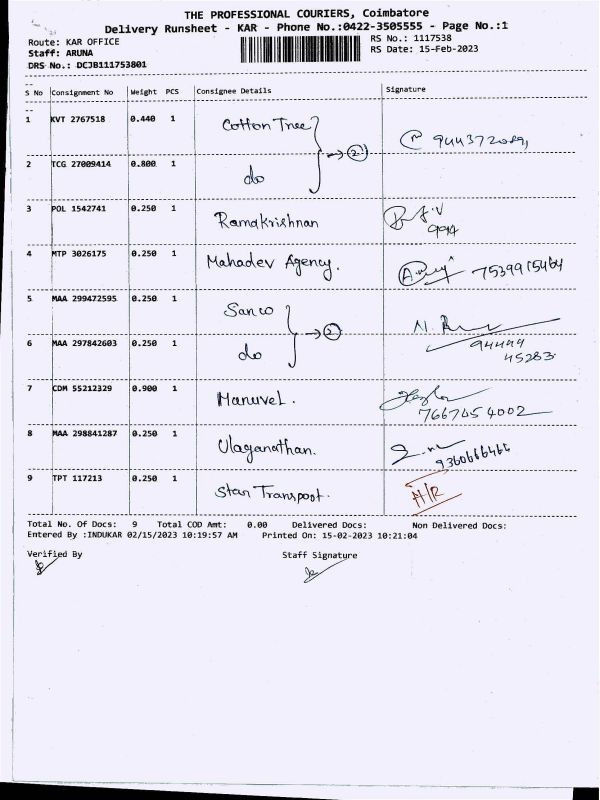 THE PROFESSIONAL COURIERS, Coimbatore
Delivery Runsheet - KAR - Phone No.:0422-3505555 - Page No.:1
Route: KAR OFFICE
RS No.: 1117538
Staff: ARUNA
RS Date: 15-Feb-2023
DRS No.: DCJB111753801
S No Consignment No Weight PCS Consignee Details Signature
1 KVT 2767518 0.440 1 Cotton Tree
2 TCG 27009414 0.800 1 do
2
3 POL 1542741 0.250 1 Ramakrishnan
4 MTP 3026175 0.250 1 Mahadev Agency. 7539915464
5 MAA 299472595 0.250 1 Sanco
6 MAA 297842603 0.250 1 do
2
94444
45283
7 CDM 55212329 0.900 1 Manuvel. 7667454002
8 MAA 298841287 0.250 1 Ulaganathan. 9360666466
9 TPT 117213 0.250 1 Star Transpoot. H/R
Total No. Of Docs: 9 Total COD Amt: 0.00 Delivered Docs: Non Delivered Docs:
Entered By :INDUKAR 02/15/2023 10:19:57 AM Printed On: 15-02-2023 10:21:04
Verified By Staff Signature